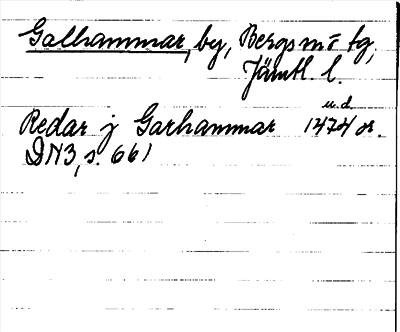 Galhammar, by, Bergs sn o tg,
Jämtl. l.
u.d.
Redar j Garhammar 1474 or.
DN3, s. 661